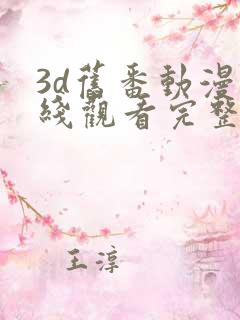 3d舊番動漫
綫觀看完整
王淳